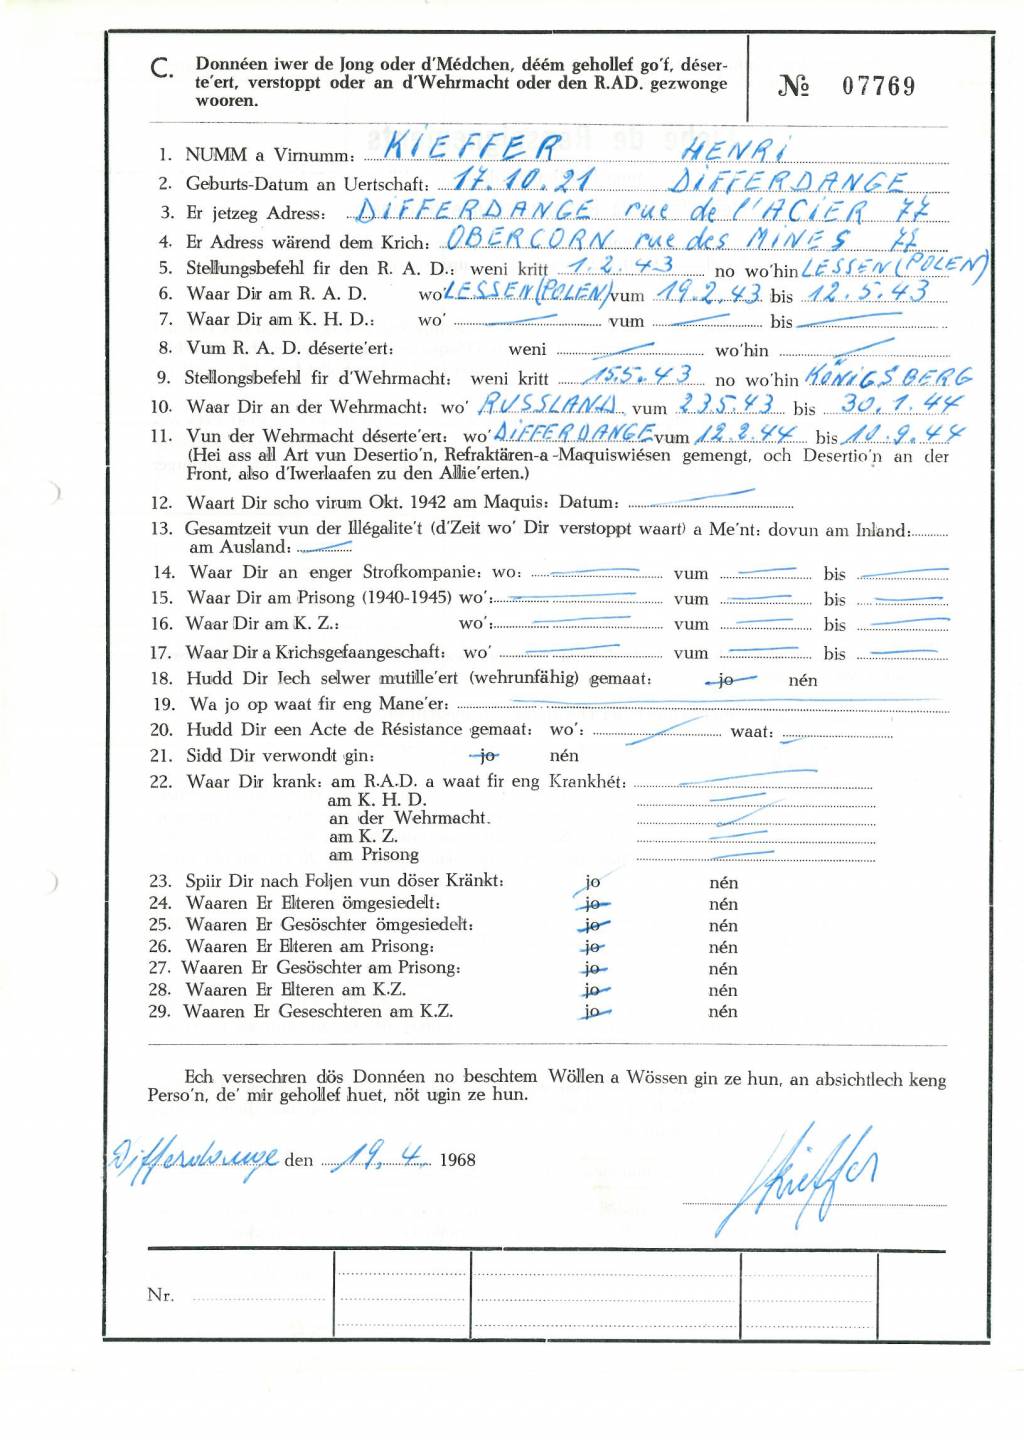 C. Donnéen iwer de Jong oder d'Médchen, déém gehollef go'f, déser-
te'ert, verstoppt oder an d'Wehrmacht oder den R.AD. gezwonge
wooren.
№ 07769
1. NUMM a Virnumm: KIEFFER HENRI
2. Geburts-Datum an Uertschaft: 17.10.21 DIFFERDANGE
3. Er jetzeg Adress: DIFFERDANGE rue de l'ACIER 77
4. Er Adress wärend dem Krich: OBERCORN rue des MINES 77
5. Stellungsbefehl fir den R. A. D.: weni kritt 1.2.43 no wo'hin LESSEN (POLEN)
6. Waar Dir am R. A. D. wo' LESSEN (POLEN) vum 19.2.43 bis 12.5.43
7. Waar Dir am K. H. D.: wo' vum bis
8. Vum R. A. D. déserte'ert: weni wo'hin
9. Stellongsbefehl fir d'Wehrmacht: weni kritt 15.5.43 no wo'hin KÖNIGSBERG
10. Waar Dir an der Wehrmacht: wo' RUSSLAND vum 23.5.43 bis 30.1.44
11. Vun der Wehrmacht déserte'ert: wo' DIFFERDANGE vum 12.2.44 bis 10.9.44
(Hei ass all Art vun Desertio'n, Refraktären-a-Maquiswiésen gemengt, och Desertio'n an der
Front, also d'Iwerlaafen zu den Allie'erten.)
12. Waart Dir scho virum Okt. 1942 am Maquis: Datum:
13. Gesamtzeit vun der Illégalite't (d'Zeit wo' Dir verstoppt waart) a Me'nt: dovun am Inland:
am Ausland:
14. Waar Dir an enger Strofkompanie: wo: vum bis
15. Waar Dir am Prisong (1940-1945) wo': vum bis
16. Waar Dir am K. Z.: wo': vum bis
17. Waar Dir a Krichsgefaangeschaft: wo' vum bis
18. Hudd Dir Iech selwer mutille'ert (wehrunfähig) gemaat: jo nén
19. Wa jo op waat fir eng Mane'er:
20. Hudd Dir een Acte de Résistance gemaat: wo': waat:
21. Sidd Dir verwondt gin: jo nén
22. Waar Dir krank: am R.A.D. a waat fir eng Krankhét:
am K. H. D.
an der Wehrmacht.
am K. Z.
am Prisong
23. Spiir Dir nach Foljen vun döser Kränkt: jo nén
24. Waaren Er Elteren ömgesiedelt: jo nén
25. Waaren Er Gesöschter ömgesiedelt: jo nén
26. Waaren Er Elteren am Prisong: jo nén
27. Waaren Er Gesöschter am Prisong: jo nén
28. Waaren Er Elteren am K.Z. jo nén
29. Waaren Er Geseschteren am K.Z. jo nén
Ech versechren dös Donnéen no beschtem Wöllen a Wössen gin ze hun, an absichtlech keng
Perso'n, de' mir gehollef huet, nöt ugin ze hun.
Differdange den 19.4. 1968
Kieffer
Nr.